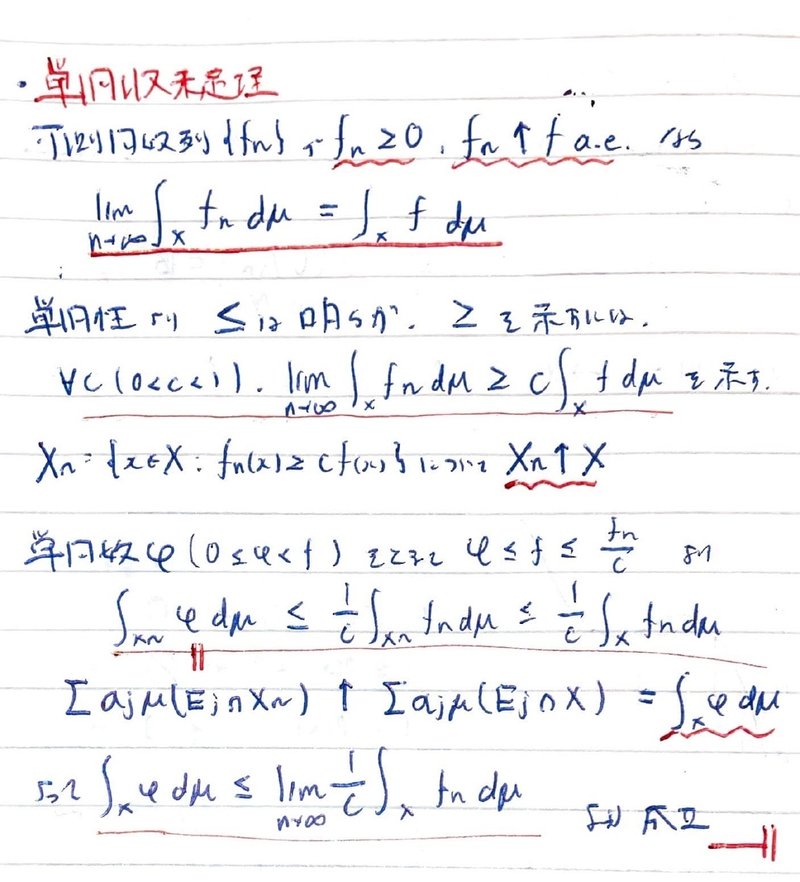 ・単調収束定理
可測関数列 {fn} で fn ≥ 0, fn ↑ f a.e. なら
lim n→∞ ∫X fn dμ = ∫X f dμ
単調性より ≤ は明らか. ≥ を示すには.
∀c (0<c<1). lim n→∞ ∫X fn dμ ≥ c∫X f dμ を示す.
Xn = {x∈X : fn(x) ≥ cf(x)} について Xn ↑ X
単関数 φ (0 ≤ φ < f) をとると φ ≤ f ≤ fn/c より
∫Xn φ dμ ≤ 1/c ∫Xn fn dμ ≤ 1/c ∫X fn dμ
||
Σ ajμ(Ej∩Xn) ↑ Σ ajμ(Ej∩X) = ∫X φ dμ
よって ∫X φ dμ ≤ lim n→∞ 1/c ∫X fn dμ より 成立